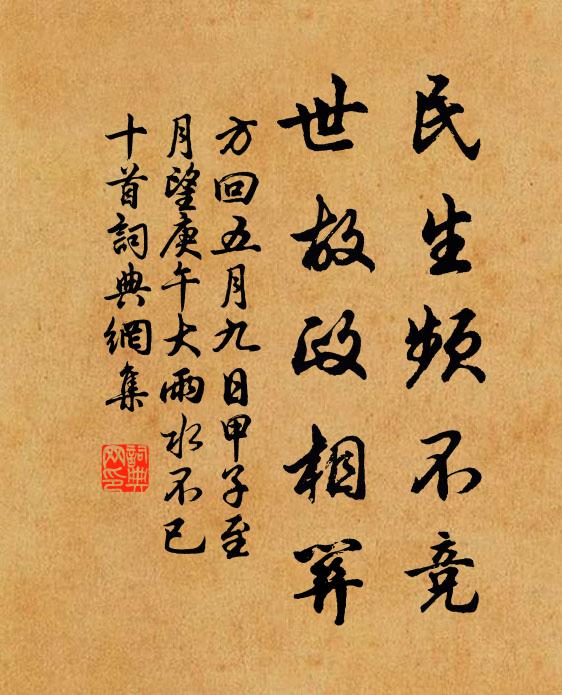 民生頻不竞
世故政相關
方回五月九日甲子至
月望庚午大雨水不已
十首詞典網集
詞典
网印